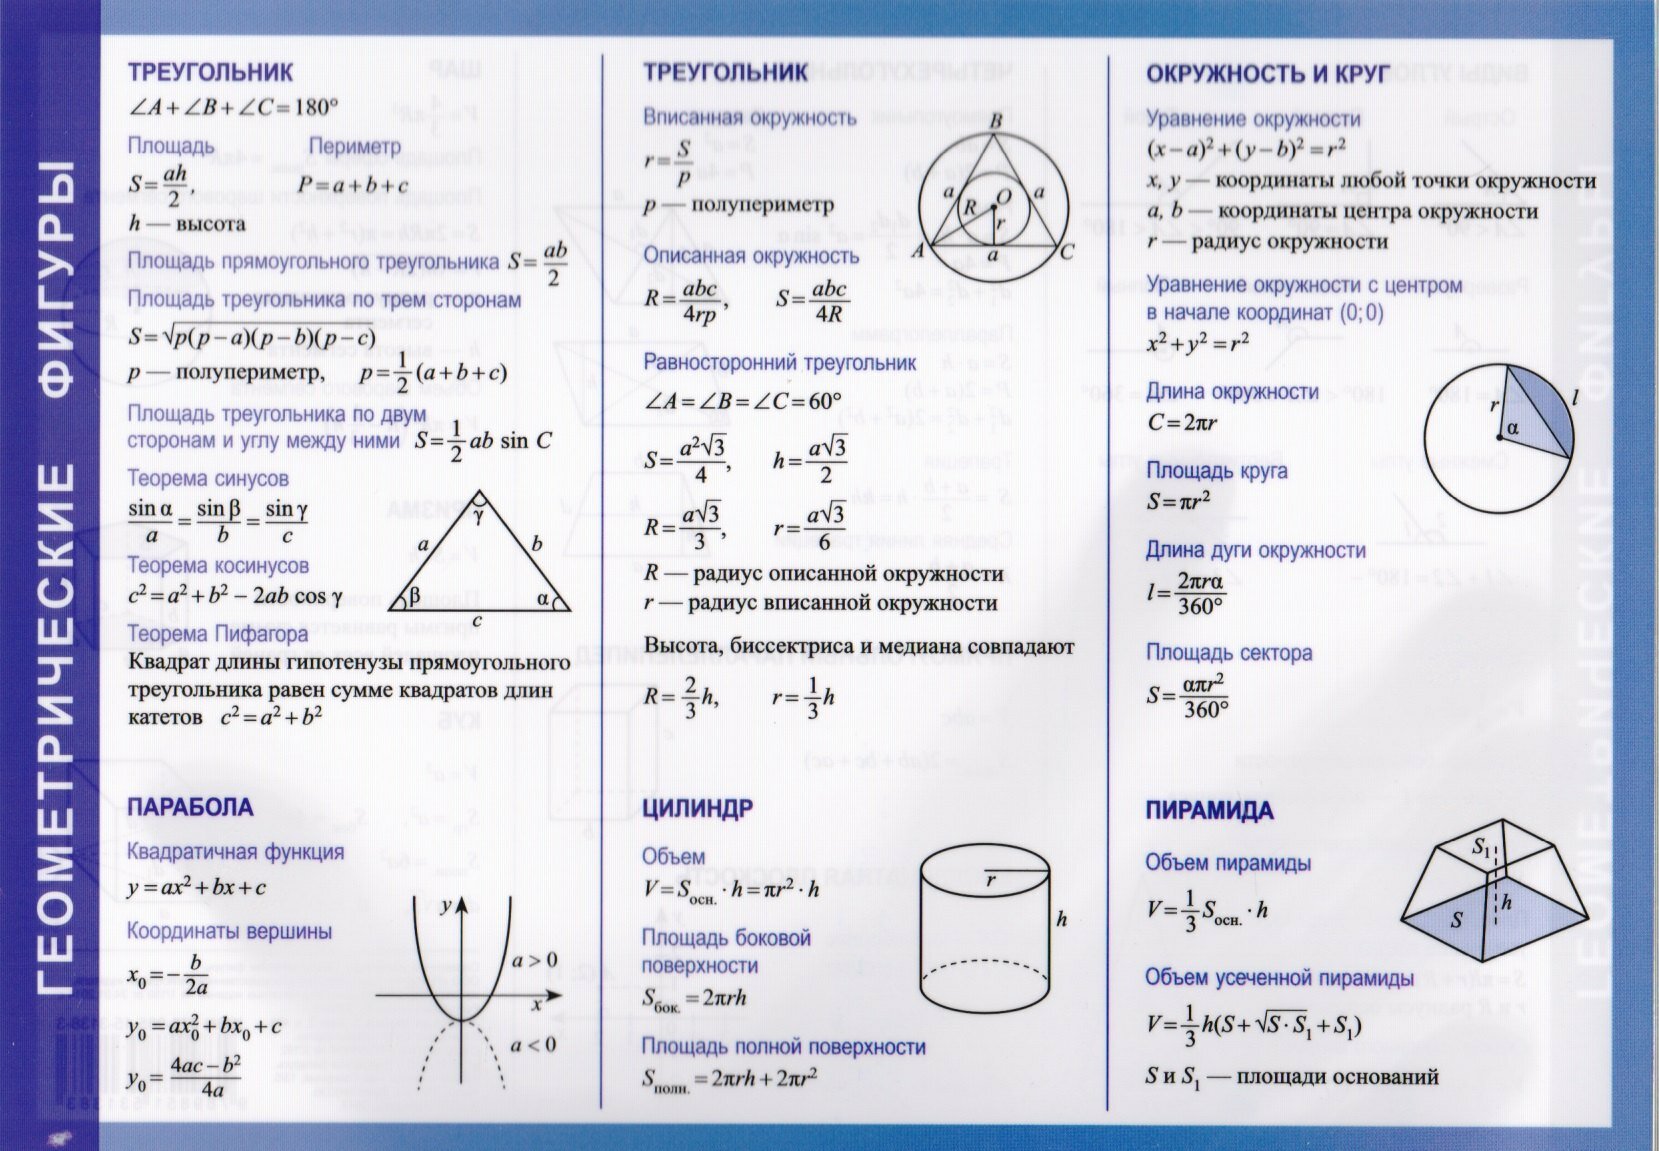 ГЕОМЕТРИЧЕСКИЕ ФИГУРЫ
ТРЕУГОЛЬНИК
∠A + ∠B + ∠C = 180°
Площадь Периметр
S = ah/2, P = a + b + c
h — высота
Площадь прямоугольного треугольника S = ab/2
Площадь треугольника по трем сторонам
S = √(p(p − a)(p − b)(p − c))
p — полупериметр, p = 1/2 (a + b + c)
Площадь треугольника по двум
сторонам и углу между ними S = 1/2 ab sin C
Теорема синусов
sin α/a = sin β/b = sin γ/c
Теорема косинусов
c² = a² + b² − 2ab cos γ
γ
a b
β α
c
Теорема Пифагора
Квадрат длины гипотенузы прямоугольного
треугольника равен сумме квадратов длин
катетов c² = a² + b²
ПАРАБОЛА
Квадратичная функция
y = ax² + bx + c
Координаты вершины
x₀ = − b/2a
y₀ = ax₀² + bx₀ + c
y₀ = (4ac − b²)/4a
y
a > 0
x
a < 0
ТРЕУГОЛЬНИК
Вписанная окружность
r = S/p
p — полупериметр
B
a a
R O
r
A a C
Описанная окружность
R = abc/4rp, S = abc/4R
Равносторонний треугольник
∠A = ∠B = ∠C = 60°
S = a²√3/4, h = a√3/2
R = a√3/3, r = a√3/6
R — радиус описанной окружности
r — радиус вписанной окружности
Высота, биссектриса и медиана совпадают
R = 2/3 h, r = 1/3 h
ЦИЛИНДР
Объем
V = Sосн. · h = πr² · h
Площадь боковой
поверхности
Sбок. = 2πrh
Площадь полной поверхности
Sполн. = 2πrh + 2πr²
r
h
ОКРУЖНОСТЬ И КРУГ
Уравнение окружности
(x − a)² + (y − b)² = r²
x, y — координаты любой точки окружности
a, b — координаты центра окружности
r — радиус окружности
Уравнение окружности с центром
в начале координат (0; 0)
x² + y² = r²
Длина окружности
C = 2πr
Площадь круга
S = πr²
r l
α
Длина дуги окружности
l = 2πrα/360°
Площадь сектора
S = απr²/360°
ПИРАМИДА
Объем пирамиды
V = 1/3 Sосн. · h
S₁
h
S
Объем усеченной пирамиды
V = 1/3 h(S + √(S · S₁) + S₁)
S и S₁ — площади оснований